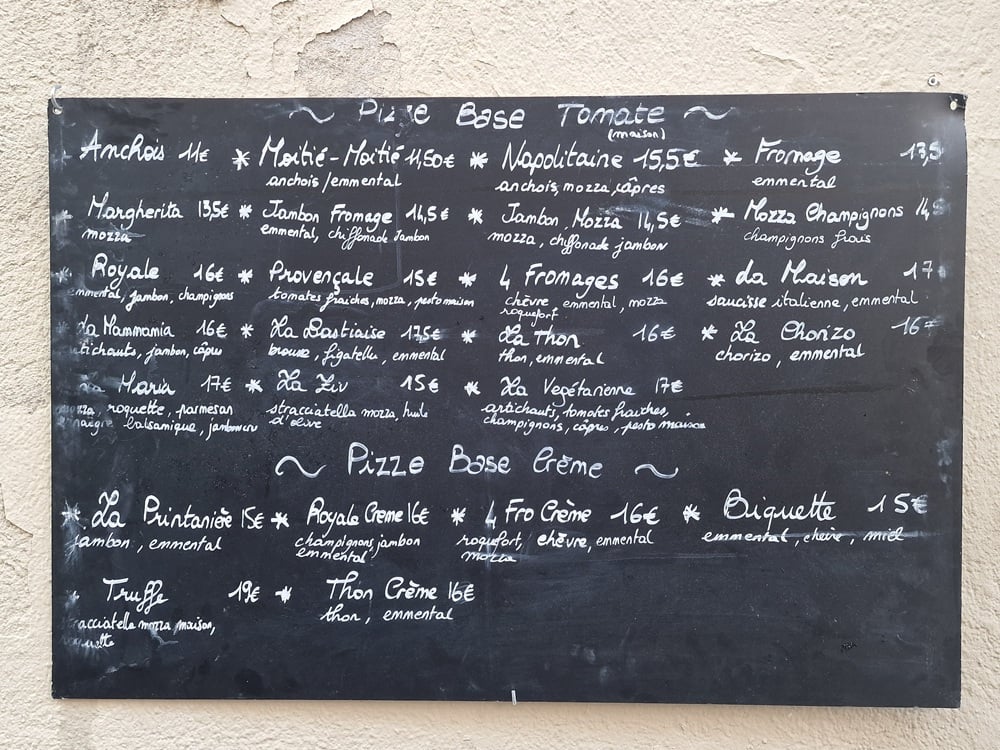 ~ Pizze Base Tomate ~
(maison)
Anchois 11€ * Moitié-Moitié 11,50€ * Napolitaine 15,5€ * Fromage 13,5
anchois/emmental anchois, mozza, câpres emmental
* Margherita 13,5€ * Jambon Fromage 14,5€ * Jambon, Mozza 14,5€ * Mozza Champignons 14,5
mozza emmental, chiffonade jambon mozza, chiffonade jambon champignons frais
* Royale 16€ * Provençale 15€ * 4 Fromages 16€ * La Maison 17
emmental, jambon, champignons tomates fraiches, mozza, pesto maison chèvre, emmental, mozza saucisse italienne, emmental
roquefort
* La Mammamia 16€ * La Bastiaise 17,5€ * La Thon 16€ * La Chorizo 16
artichauts, jambon, câpres brousse, figatellu, emmental thon, emmental chorizo, emmental
La Maria 17€ * La Ziv 15€ * La Vegétarienne 17€
mozza, roquette, parmesan stracciatella mozza, huile artichauts, tomates fraiches,
balsamique, jambon cru d'olive champignons, câpres, pesto maison
~ Pizze Base Crème ~
* La Printanière 15€ * Royale Creme 16€ * 4 Fro Crème 16€ * Biquette 15€
jambon, emmental champignons, jambon roquefort, chèvre, emmental emmental, chèvre, miel
emmental mozza
Truffe 19€ * Thon Crème 16€
stracciatella mozza maison, thon, emmental